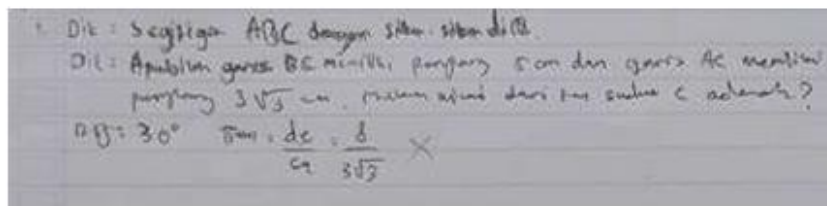 1. Dik : Segitiga ABC dengan siku-siku di B
Dit : Apabila garis BC memiliki panjang 5 cm dan garis AC memiliki
panjang 3√3 cm, nilai dari tan sudut C adalah?
30° Tan = de/ca = 8/3√3 ×